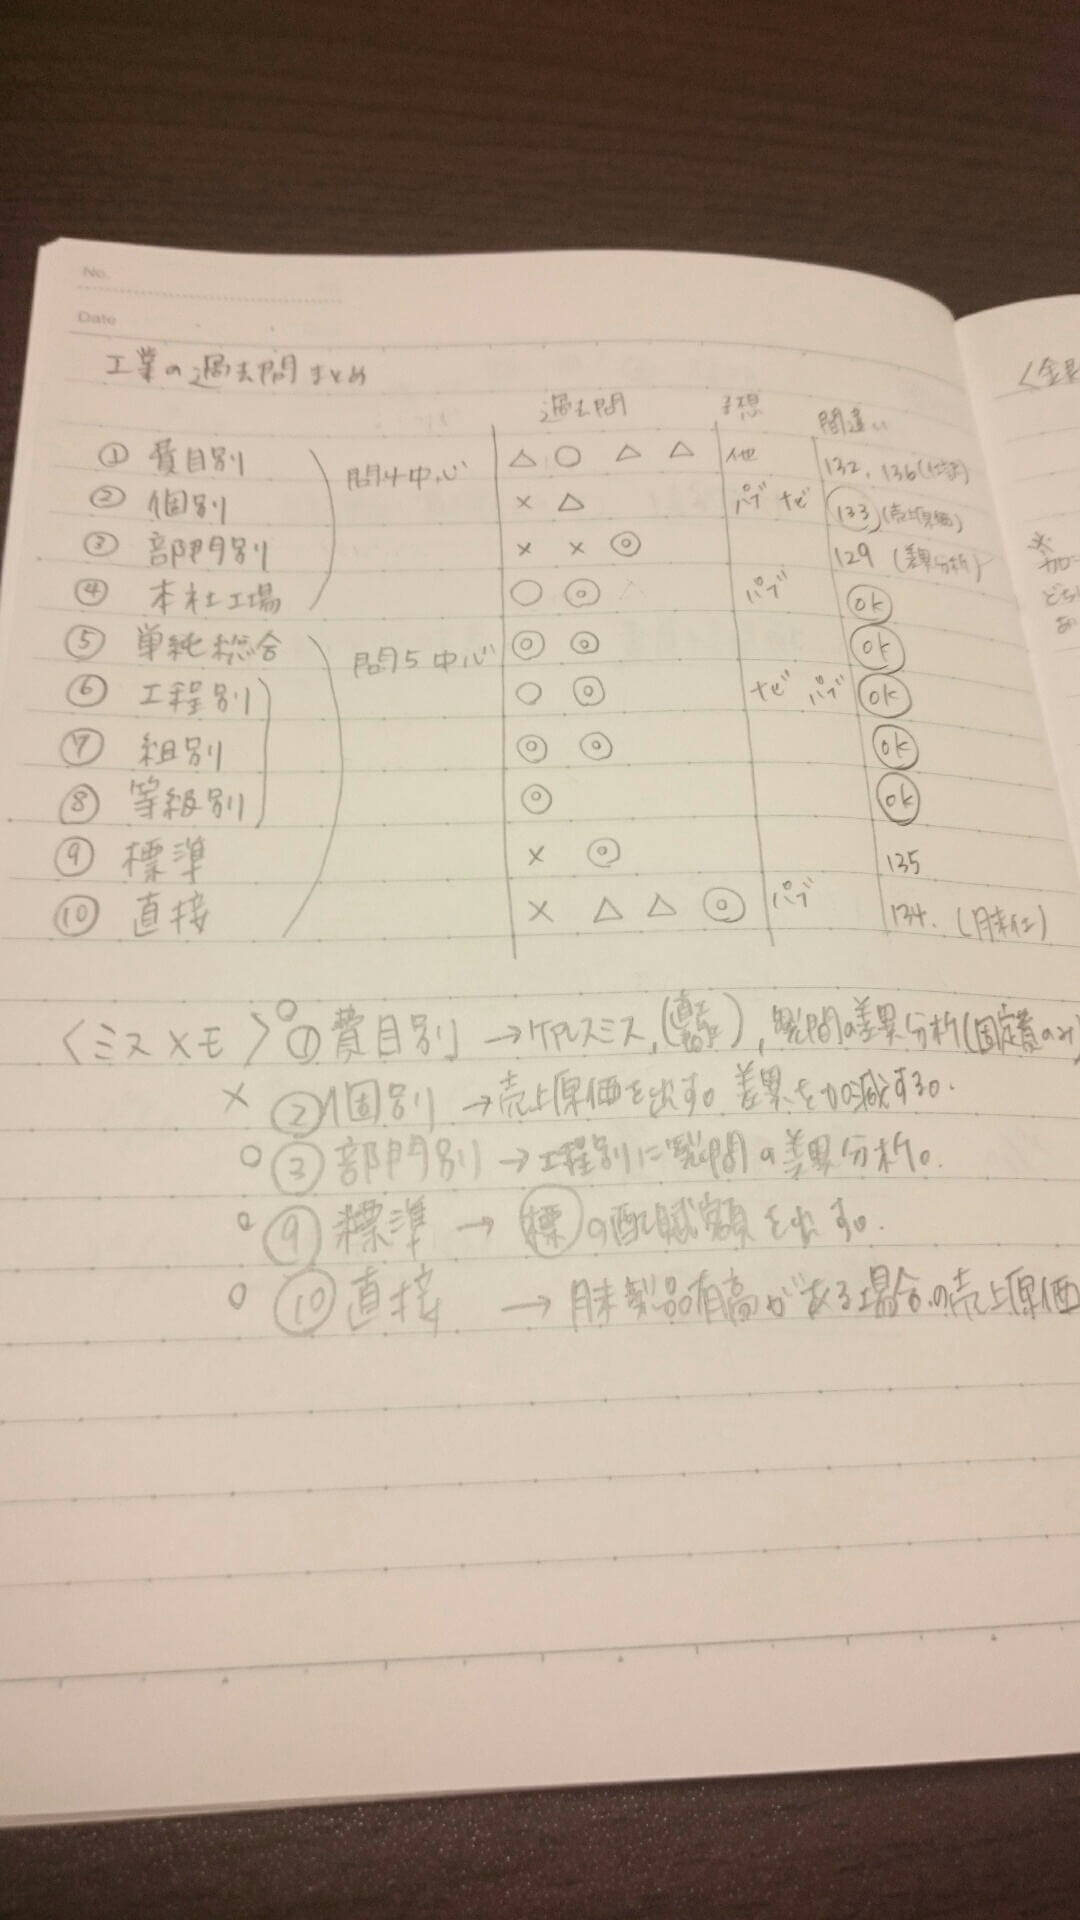 No.
Date
工業の過去問まとめ
過去問 予想 間違い
① 費目別 問4中心 △ ○ △ △ 他 132, 136(仕訳)
② 個別 × △ パブ ナビ 133 (売上原価)
③ 部門別 × × ◎ 129 (差異分析)
④ 本社工場 ○ ◎ パブ ok
⑤ 単純総合 問5中心 ◎ ◎ ok
⑥ 工程別 ○ ◎ ナビ パブ ok
⑦ 組別 ◎ ◎ ok
⑧ 等級別 ◎ ok
⑨ 標準 × ◎ 135
⑩ 直接 × △ △ ◎ パブ 134. (月末仕)
<ミスメモ> ○ ① 費目別 → ケアレスミス, 製間の差異分析(固定費のみ)
× ② 個別 → 売上原価を出す。差異を加減する。
○ ③ 部門別 → 工程別に製間の差異分析。
○ ⑨ 標準 → 標の配賦額を出す。
○ ⑩ 直接 → 月末製品有高がある場合の売上原価
<金
※
加
どち
あ